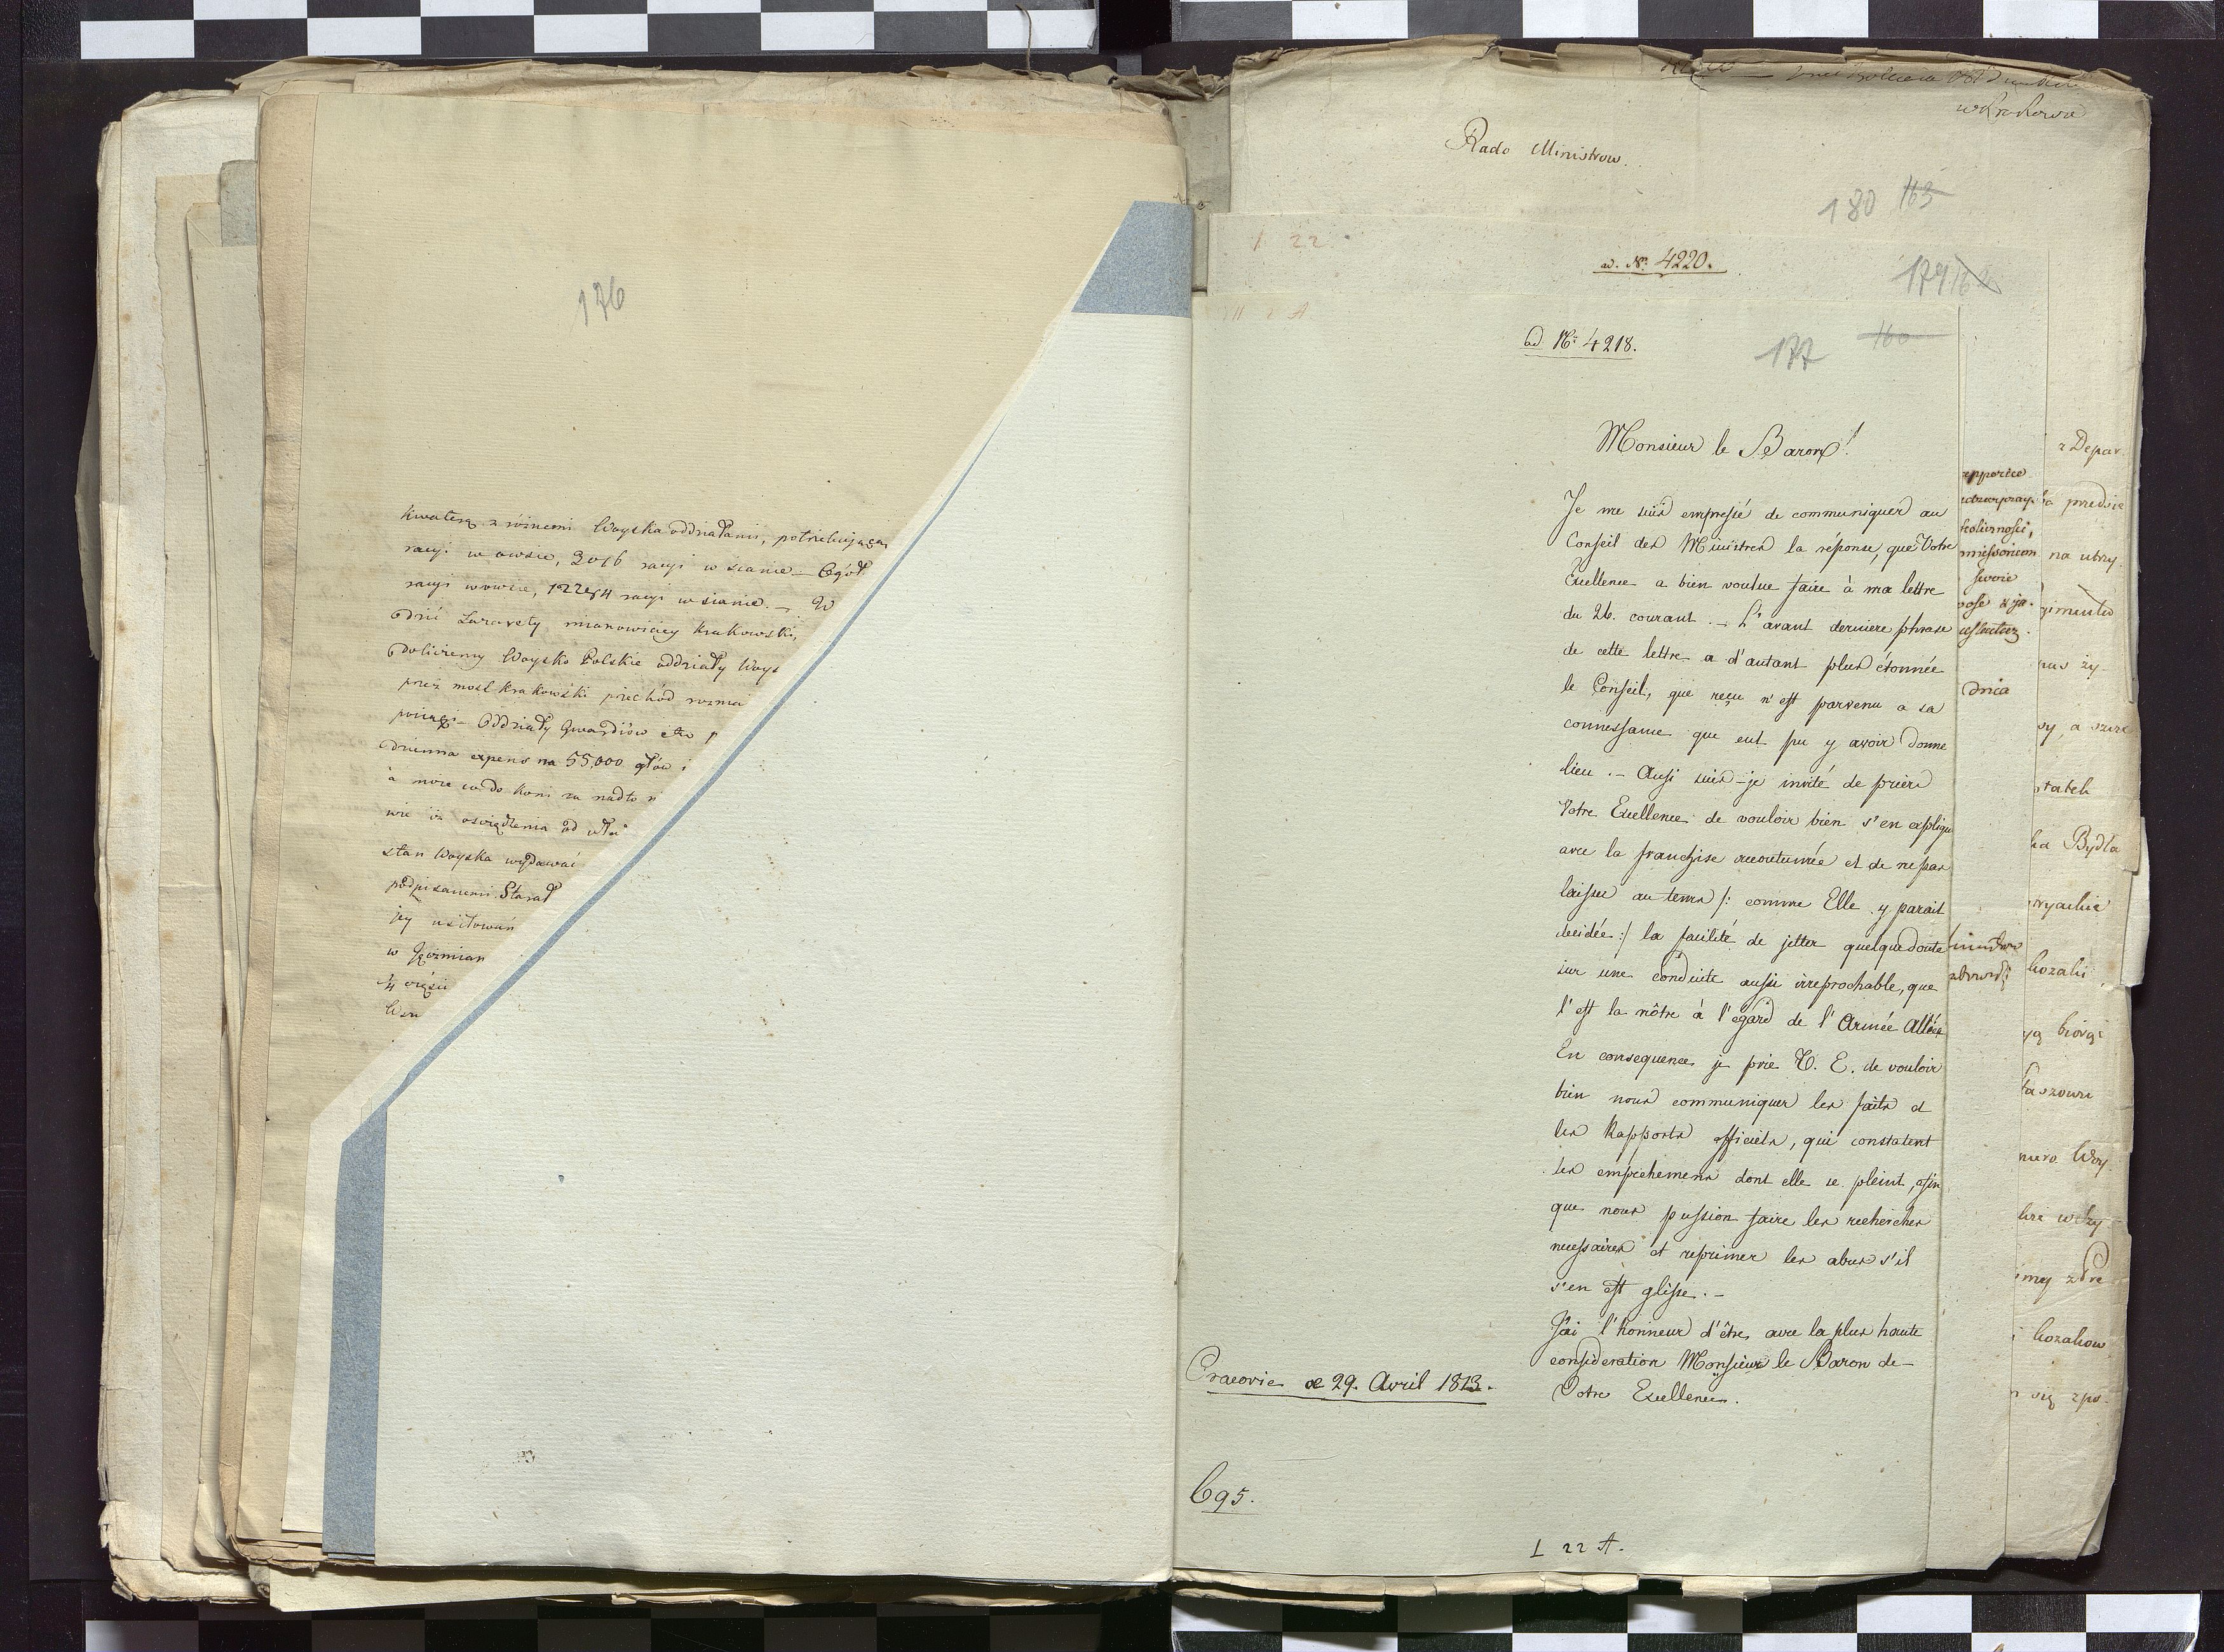 176
kwaterą z różnemi Woyska oddziałami, potrzebującą
racyi w owsie, 3076 racyi w sianie — Ogół
racyi w owsie, 12284 racyi w sianie. — W
dnić Lazarety, mianowiciey Krakowski,
doliczemy Woysko Polskie oddziały Woys
przez most Krakowski przechód rozma
pociągi — Oddziały Gwardiów etc p
dzienna expens na 55,000 głów i
a może co do koni za nadto n
stan Woyska wydawać
podpisanemi. Starał
jey usiłowań
w
1/4 części
Rado Ministrow.
w Krakowie
180 163
1 22
ad. Nr. 4220.
179
ad Nr. 4218.
177 160
Monsieur le Baron!
Je me suis empressé de communiquer au
Conseil des Ministres la réponse, que Votre
Excellence a bien voulue faire à ma lettre
du 26. courant. — L'avant derniere phrase
de cette lettre a d'autant plus étonnée
le Conseil, que reçu n'est parvenu a sa
connessance que eut pu y avoir donne
lieu. — Aussi suis-je invité de prier
Votre Excellence de vouloir bien s'en expliqu
avec la franchise accoutumée et de ne pas
laisser au tems /: comme Elle y parait
decidée :/ la facilité de jetter quelque doute
sur une conduite aussi irreprochable, que
l'est la nôtre à l'égard de l'Armée Alliée
En consequence je prie V. E. de vouloir
bien nous communiquer les faits et
les Rapports officiels, qui constatent
les empechemens dont elle se pleint, afin
que nous pussion faire les recherches
necessaires et reprimer les abus s'il
s'en est glissé. —
J'ai l'honneur d'être avec la plus haute
consideration Monsieur le Baron de —
Votre Excellence.
Cracovie ce 29. Avril 1813.
695.
1 22 A.
rapporcie
koliczności,
swoie
dnia
z Depar
na utrzy
nas ży-
statek
ha Bydła
kozaki
Woy
kozakow
się zpo-